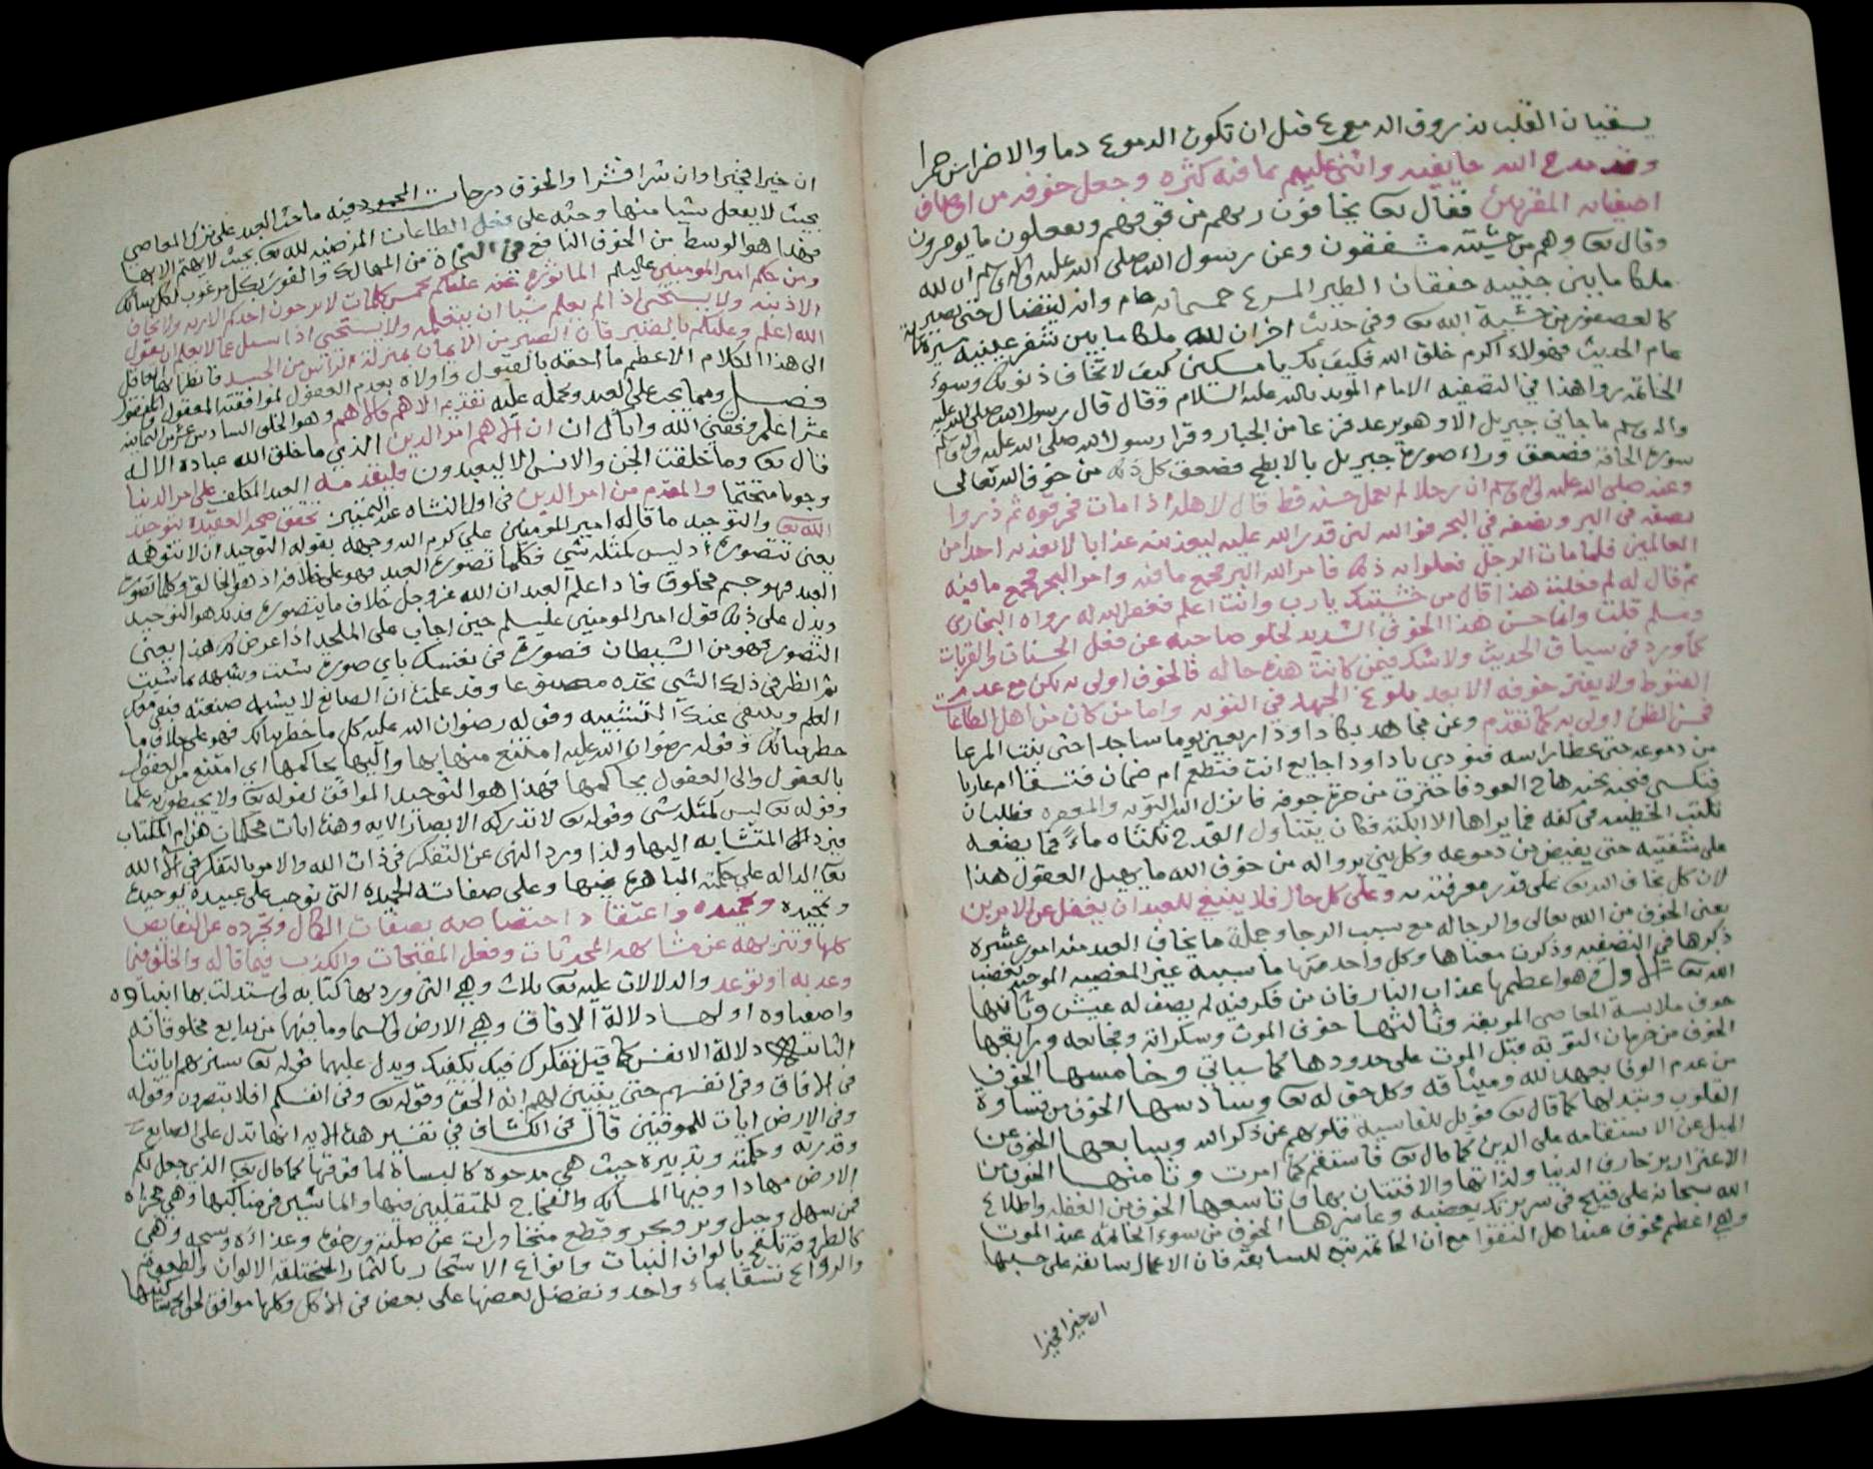 يسقيان القلب بذروف الدموع قبل ان تكون الدموع دما والاضراس جمرا
وقد مدح الله خايفيه واثنى عليهم بما فيه كثره وجعل خوفه من اوصاف
اصفيائه المقربين فقال تعا يخافون ربهم من فوقهم ويفعلون ما يومرون
وقال تعا وهم من خشيته مشفقون وعن رسول الله صلى الله عليه واله وسلم ان لله
ملكا ما بين جنبيه خفقان الطير المسرع خمسمائه عام وانه ليتضال حتى يصير
كالعصفور من خشية الله تعا وفي حديث اخر ان لله ملكا ما بين شفر عينيه مسيرة مائة
عام الحديث فهولاء اكرم خلق الله فكيف بك يا مسكين كيف لا تخاف ذنوبك وسوء
الخاتمه روا هذا في التصفيه الامام المويد بالله عليه السلام وقال قال رسول الله صلى الله عليه
واله وسلم ما جاني جبريل الا وهو يرعد فزعا من الجبار وقرا رسول الله صلى الله عليه واله وسلم
سورة الحاقة فصعق وراء صورة جبريل بالابطح فصعق كل ذلك من خوف الله تعالى
وعنه صلى الله عليه واله وسلم ان رجلا لم يعمل حسنه قط قال لاهله اذا مات فحرقوه ثم ذروا
نصفه في البر ونصفه في البحر فو الله لئن قدر الله عليه ليعذبنه عذابا لا يعذبه احدا من
العالمين فلما مات الرجل فعلوا به ذلك فامر الله البر فجمع ما فيه وامر البحر فجمع ما فيه
ثم قال له لم فعلت هذا قال من خشيتك يا رب وانت اعلم فغفر الله له رواه البخاري
ومسلم قلت وانما حسن هذا الخوف الشديد لخلو صاحبه عن فعل الحسنات والقربات
كما ورد في سياق الحديث ولا شك فيمن كانت هذه حاله فالخوف اولى به لكن مع عدم
القنوط ولا يفتر خوفه الا بعد بلوغ الجهد في التوبه واما من كان من اهل الطاعات
فحسن الظن اولى به كما تقدم وعن مجاهد بكا داود اربعين يوما ساجدا حتى نبت المرعا
من دموعه حتى غطا راسه فنودي يا داود اجايع انت فتطعم ام ضمان فتسقا ام عاريا
فتكسى فنحب نحبة هاج العود فاحترق من حر جوفه فانزل الله التوبه والمغفره فطلب ان
تكتب الخطيئه في كفه فما يراها الا ابكته فكان يتناول القدح ثلثاه ماءً فما يضعه
على شفتيه حتى يفيض من دموعه وكل نبي يروا له من خوف الله ما يهيل العقول هذا
لان كل يخاف الله تعا على قدر معرفته به وعلى كل حال فلا ينبغي للعبد ان يغفل عن الامرين
يعني الخوف من الله تعالى والرجا له مع سبب الرجا وجملة ما يخاف العبد منه امور عشره
ذكرها في التصفيه وذكرت معناها وكل واحد منها ما سببه غير المعصيه الموجبه لغضب
الله تعا الاول هو اعظمها عذاب النار فان من فكر فيه لم يصف له عيش وثانيها
خوف ملابسة المعاصي الموبقه وثالثها خوف الموت وسكراته وفجائعه ورابعها
الخوف من حرمان التوبه قبل الموت على حدودها كما سياتي وخامسها الخوف
من عدم الوفا بعهد الله وميثاقه وكل حق له تعا وسادسها الخوف من قساوة
القلوب وتبدلها كما قال تعا فويل للقاسية قلوبهم عن ذكر الله وسابعها الخوف عن
الميل عن الاستقامه على الدين كما قال تعا فاستقم كما امرت وثامنها الخوف من
الاغترار بزخارف الدنيا ولذاتها والافتتان بها وتاسعها الخوف من الغفله واطلاع
الله سبحانه على قبيح في سريرتك يغضبه وعاشرها الخوف من سوء الخاتمه عند الموت
وهي اعظم مخوف عند اهل التقوا مع ان الخاتمة تتبع للسابقه فان الاعمال سابقه على حسبها
ان خيرا فخيرا
ان خيرا فخيرا وان شرا فشرا والخوف درجات المحمود فيه ما حث العبد على ترك المعاصي
بحيث لا يفعل شيا منها وحثه على فعل الطاعات المرضيه لله تعا بحيث لا يهتم الا بها
فهذا هو الوسط من الخوف النافع في النجاة من المهالك والفوز بكل مرغوب
ومن حكم امير المومنين عليلم الماثورة عنه عليكم بخمس كلمات لا يرجون احدكم الا ربه ولا يخاف
الا ذنبه ولا يستحي اذا لم يعلم شيا ان يتعلمه ولا يستحي اذا سئل عما لا يعلم ان يقول
الله اعلم وعليكم بالصبر فان الصبر من الايمان بمنزلة الراس من الجسد فانظر ايها العاقل
الى هذا الكلام الاعظم ما احقه بالقبول واولاه بعدم العضول لموافقته المعقول والمنقول
فصل ومما يجب على العبد ويحمله عليه تقديم الاهم فالاهم وهو الخلق السادس عشر من الثمانيه
عشر اعلم وفقني الله واياك ان ان الاهم امر الدين الذي ما خلق الله عباده الا له
قال تعا وما خلقت الجن والانس الا ليعبدون فليقدمه العبد المكلف على امر الدنيا
وجوبا متحتما والمقدم من امر الدين في اول النشاه عند التمييز تحقق صحة العقيده بتوحيد
الله تعا والتوحيد ما قاله امير المومنين علي كرم الله وجهه بقوله التوحيد ان لا تتوهمه
يعني تتصوره اذ ليس كمثله شي فكلما تصوره العبد فهو على خلافه اذ هو الخالق وكلما تصوره
العبد فهو جسم مخلوق فاذا علم العبد ان الله عز وجل خلاف ما يتصوره فذلك هو التوحيد
ويدل على ذلك قول امير المومنين عليلسلم حين اجاب على الملحد اذا عرض لك هذا يعني
التصور فهو من الشيطان فصوره في نفسك باي صورة شئت وشبهه بما شئت
ثم انظر في ذلك الشي تجده مصنوعا وقد علمت ان الصانع لا يشبه صنعته
العلم وينتفي عنك التشبيه وقوله رضوان الله عليه كل ما خطر ببالك فهو على خلاف ما
خطر ببالك وقوله رضوان الله عليه امتنع منها بها واليها حاكمها اي امتنع من العقول
بالعقول والى العقول يحاكمها فهذا هو التوحيد الموافق لقوله تعا ولا يحيطون به علما
وقوله تعا ليس كمثله شي وقوله تعا لا تدركه الابصار الايه وهذه ايات محكمات هن ام الكتاب
فيرد المتشابه اليها ولذا ورد النهي عن التفكر في ذات الله والامر بالتفكر في آلاء الله
تعا الداله على حكمته الباهرة فيها وعلى صفاته الحميده التي توجب على عبيده توحيده
وتمجيده وتحميده واعتقاد اختصاصه بصفات الكمال وتجرده عن النقايص
كلها وتنزيهه عن مشابهه المحدثات وفعل المقبحات والكذب فيما قاله والخلف فيما
وعد به او توعد والدلالات عليه تعا ثلاث وهي التي ورد بها كتابه واستدلت بها انبياوه
واصفياوه اولها دلالة الافاق وهي الارض والسما وما فيها من بدايع مخلوقاته
الثانيه دلالة الانفس كما قيل تفكرك فيك يكفيك ويدل عليهما قوله تعا سنريهم اياتنا
في الافاق وفي انفسهم حتى يتبين لهم انه الحق وقوله تعا وفي انفسكم افلا تبصرون وقوله
وفي الارض ايات للموقنين قال في الكشاف في تفسير هذه الايه انها تدل على الصانع
وقدرته وحكمته وتدبيره حيث هي مدحوة كالبساط لما فوقها كما قال تعا الذي جعل لكم
الارض مهادا وفيها المسالك والفجاج للمتقلبين فيها والماشين في مناكبها وهي مجزاه
فمن سهل وجبل وبر وبحر وقطع متجاورات من صلبه ورخوه وعذاة وسبخه وهي
كالطروقة تلقح بالوان النبات وانواع الاشجار بالثمار المختلفه الالوان والطعوم
والروائح تسقا بماء واحد ونفضل بعضها على بعض في الاكل وكلها موافق لحوائج ساكنيها